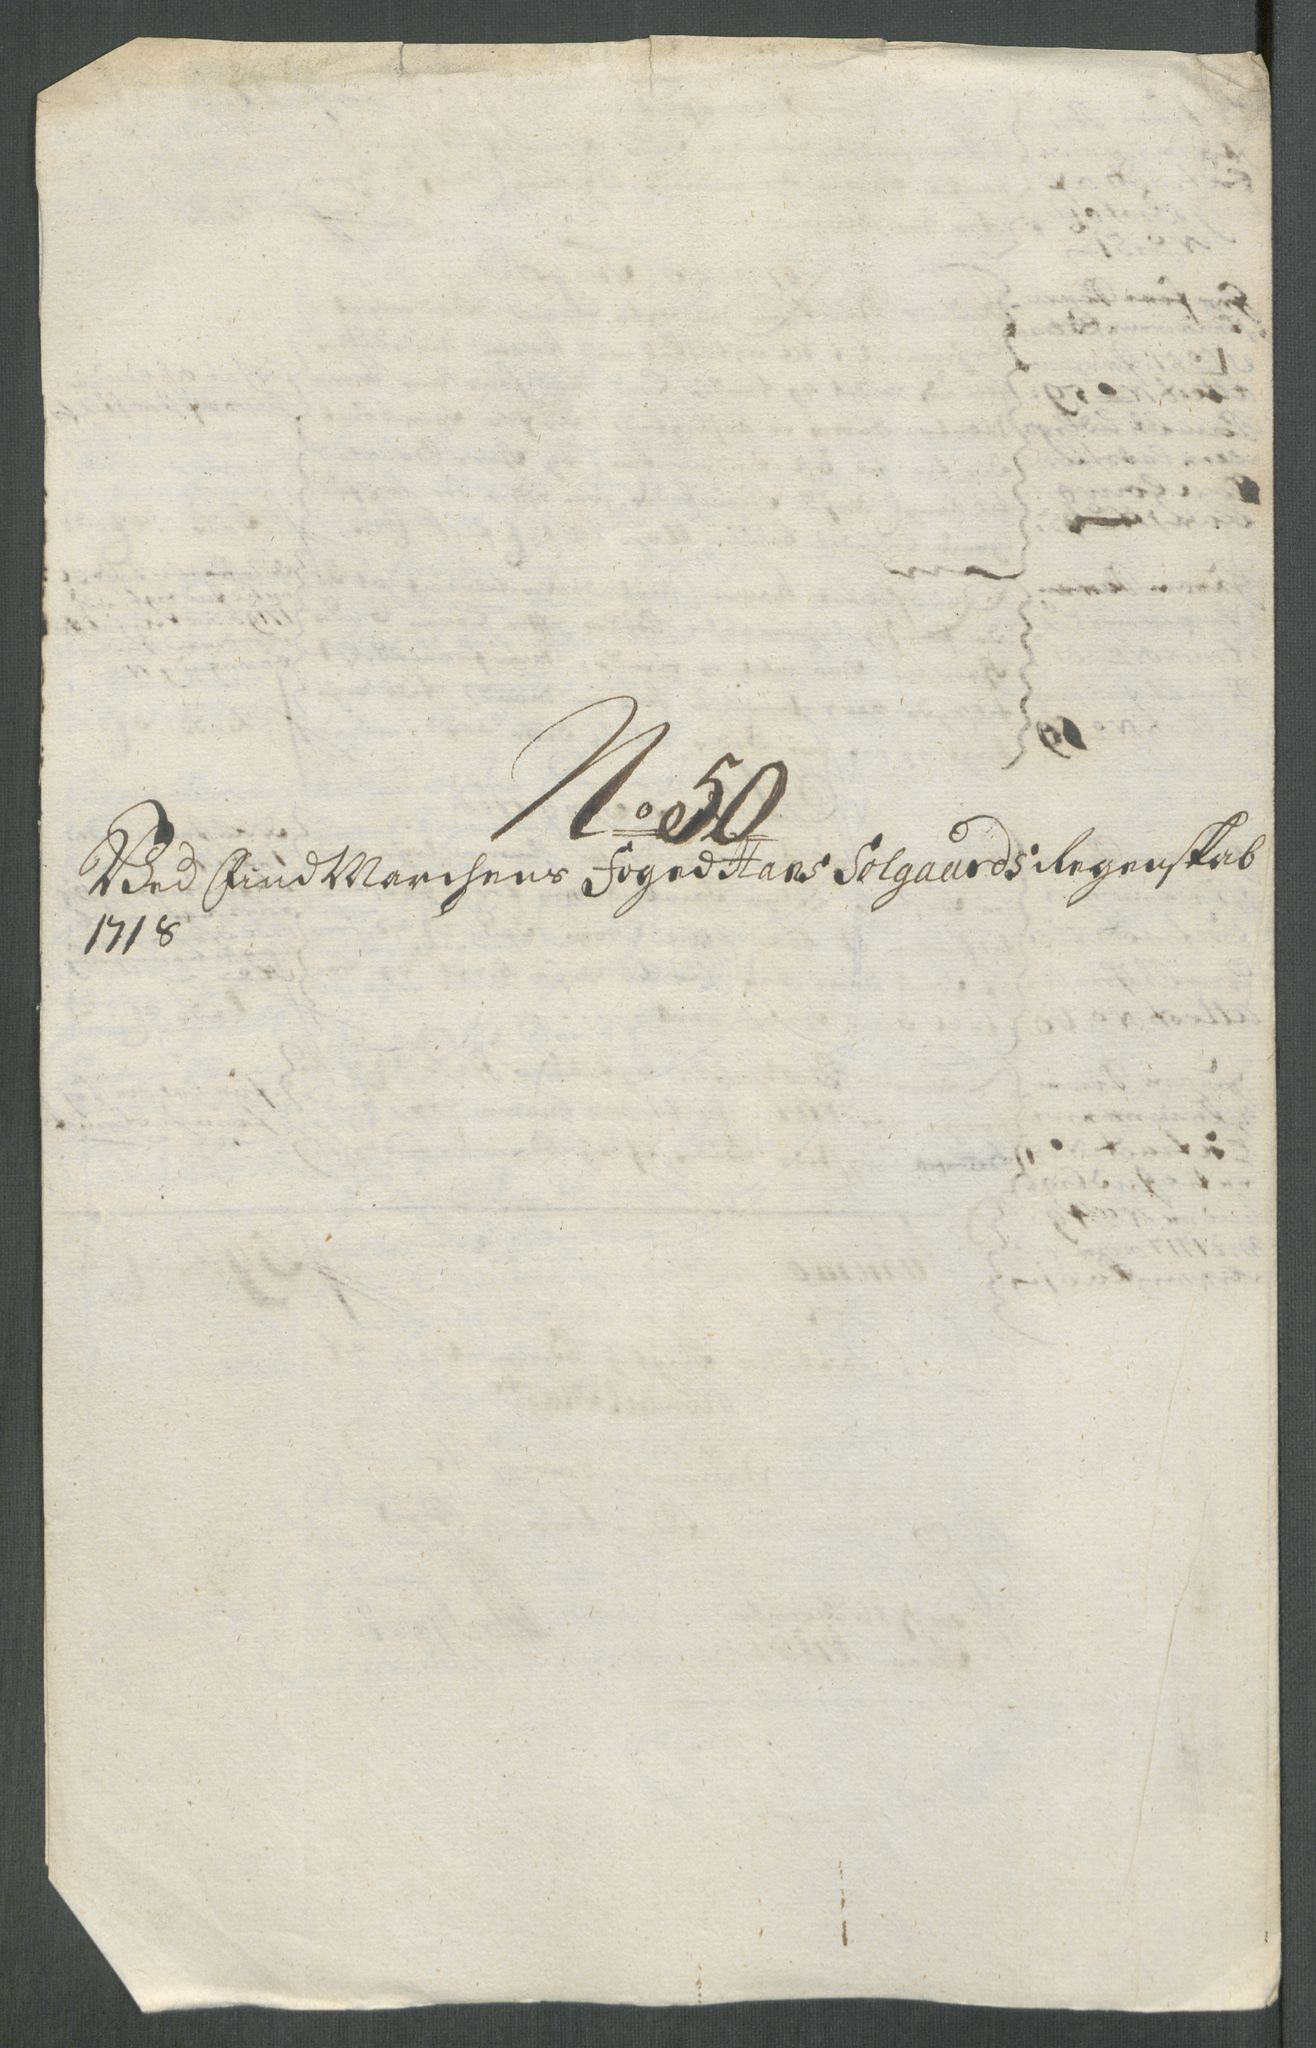 No 50
Ved Find Marchens Foged Hans Solgaards Regenskab
1718